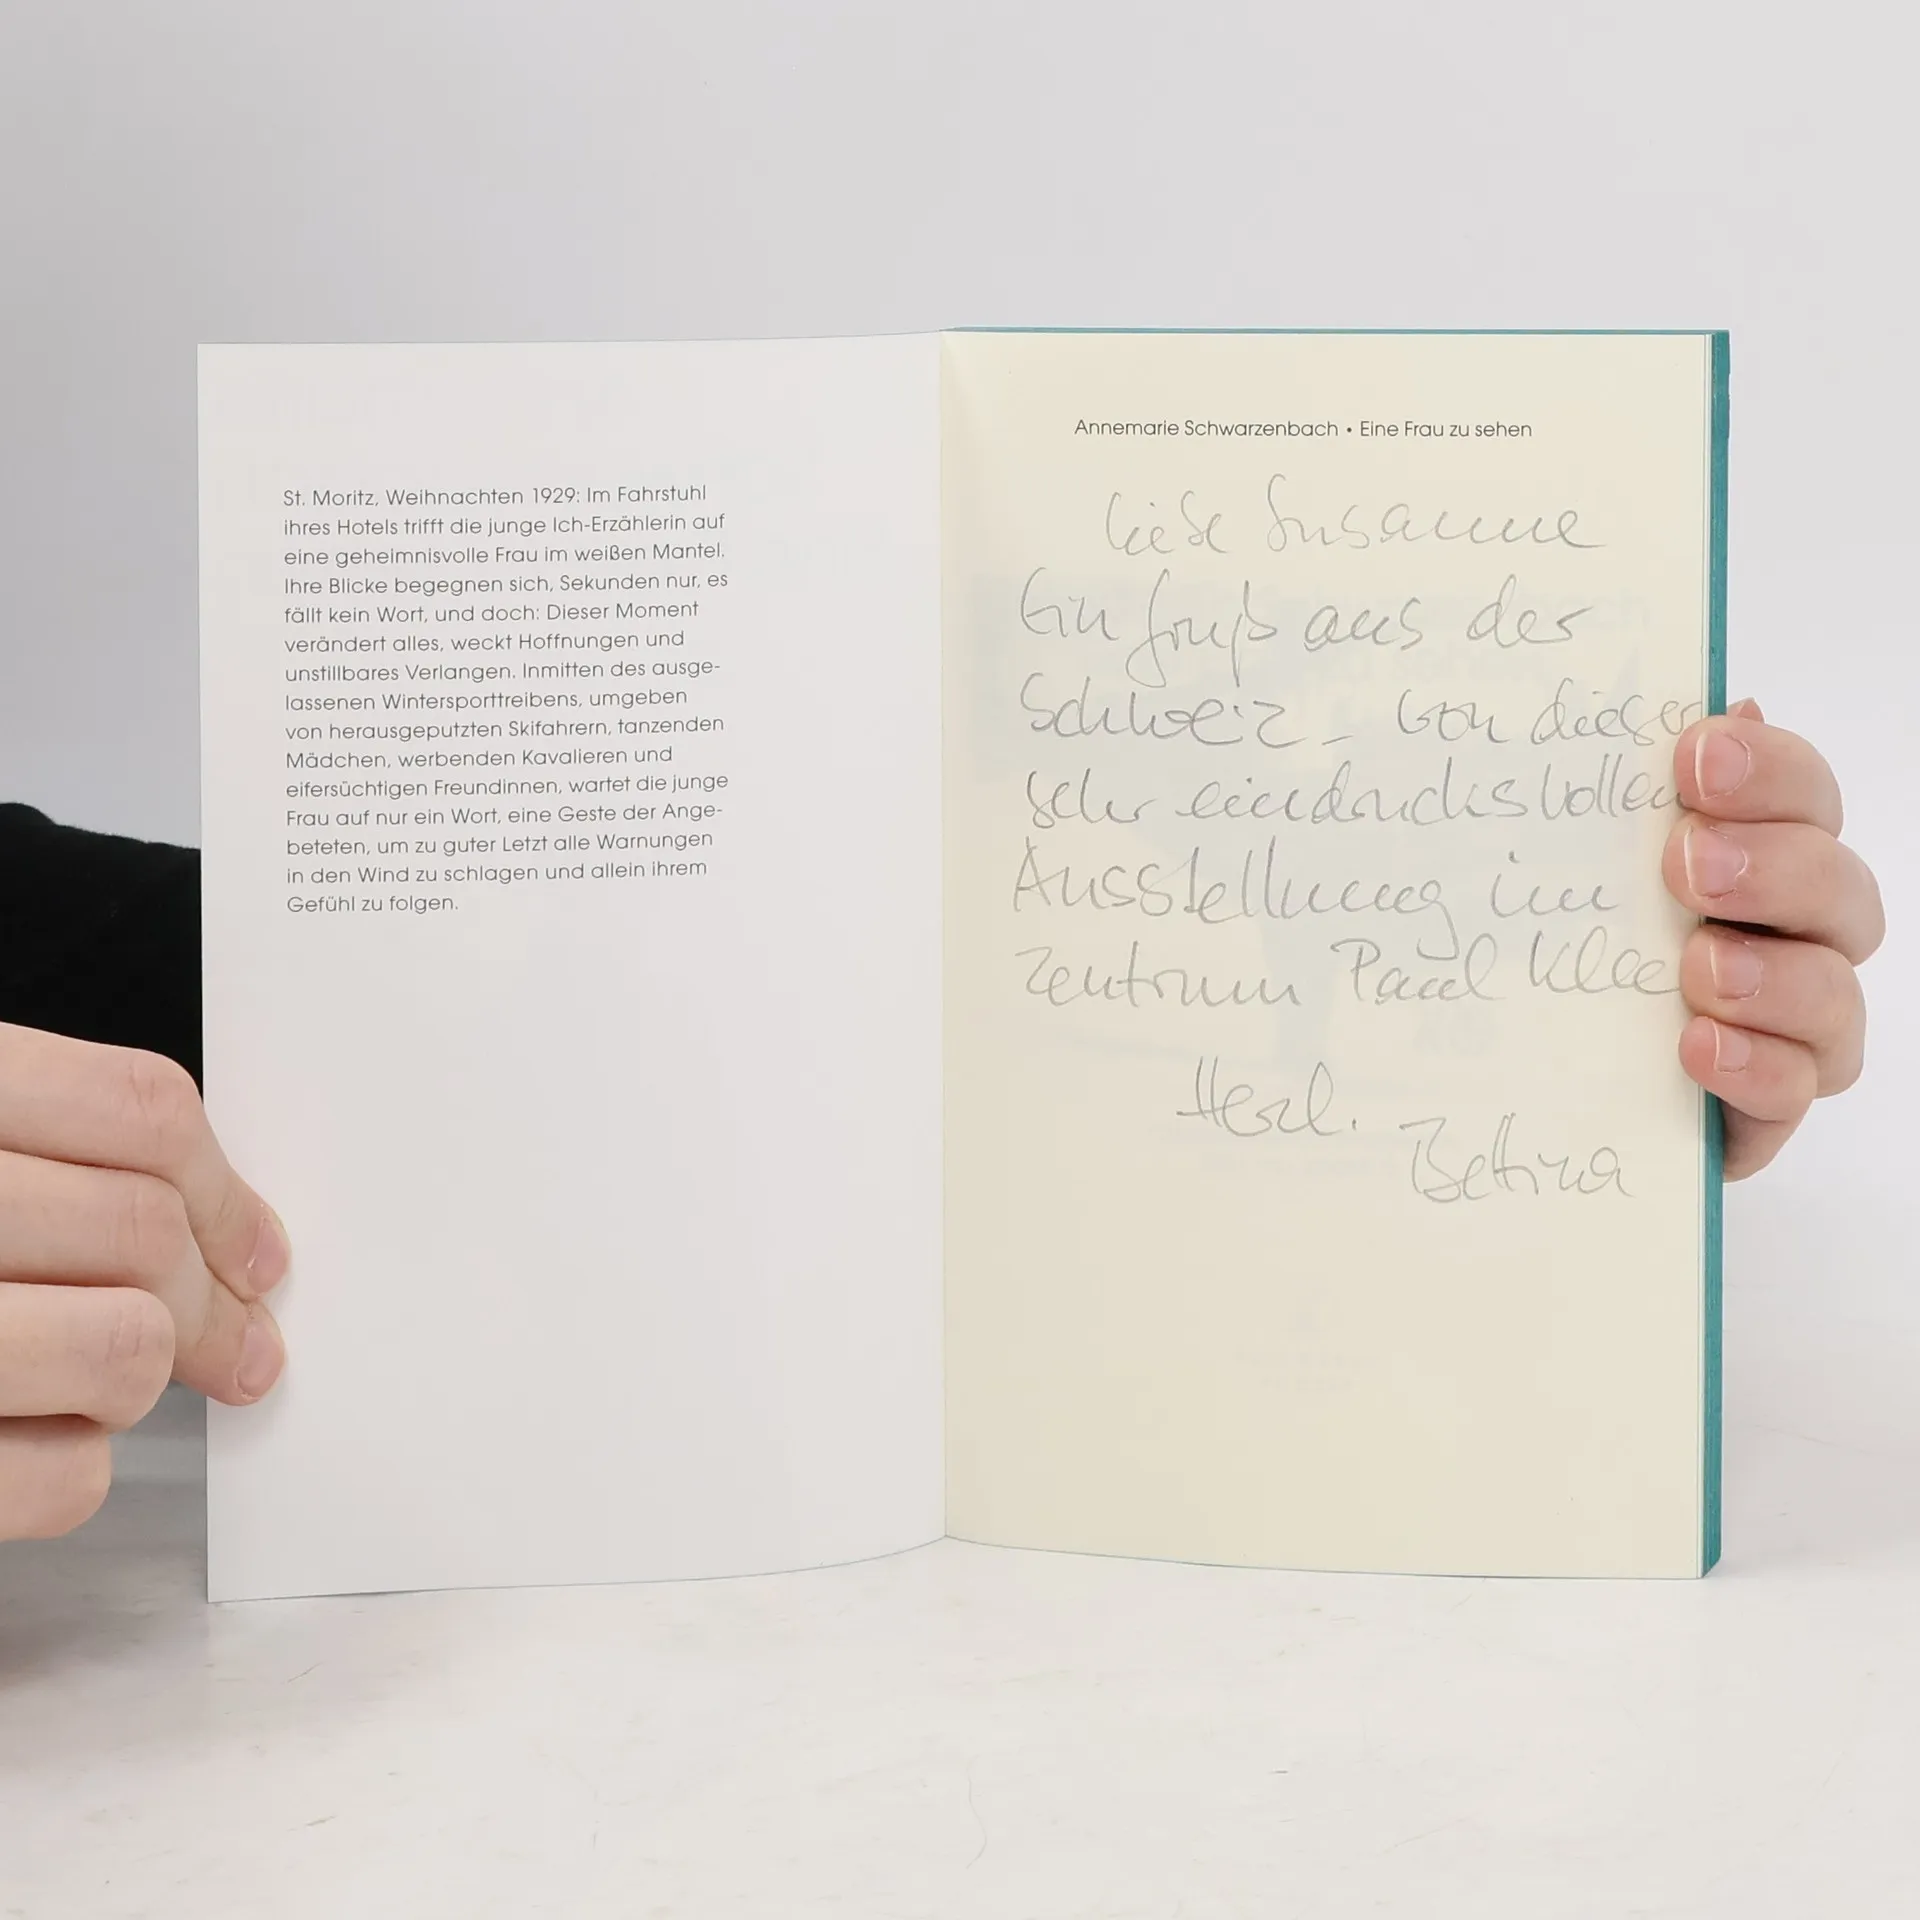 St. Moritz, Weihnachten 1929: Im Fahrstuhl
ihres Hotels trifft die junge Ich-Erzählerin auf
eine geheimnisvolle Frau im weißen Mantel.
Ihre Blicke begegnen sich, Sekunden nur, es
fällt kein Wort, und doch: Dieser Moment
verändert alles, weckt Hoffnungen und
unstillbares Verlangen. Inmitten des ausge-
lassenen Wintersporttreibens, umgeben
von herausgeputzten Skifahrern, tanzenden
Mädchen, werbenden Kavalieren und
eifersüchtigen Freundinnen, wartet die junge
Frau auf nur ein Wort, eine Geste der Ange-
beteten, um zu guter Letzt alle Warnungen
in den Wind zu schlagen und allein ihrem
Gefühl zu folgen.
Annemarie Schwarzenbach • Eine Frau zu sehen
Liebe Susanne
Ein Gruß aus der
Schweiz - von dieser
sehr eindrucksvollen
Ausstellung im
Zentrum Paul Klee
Herzl.
Bettina